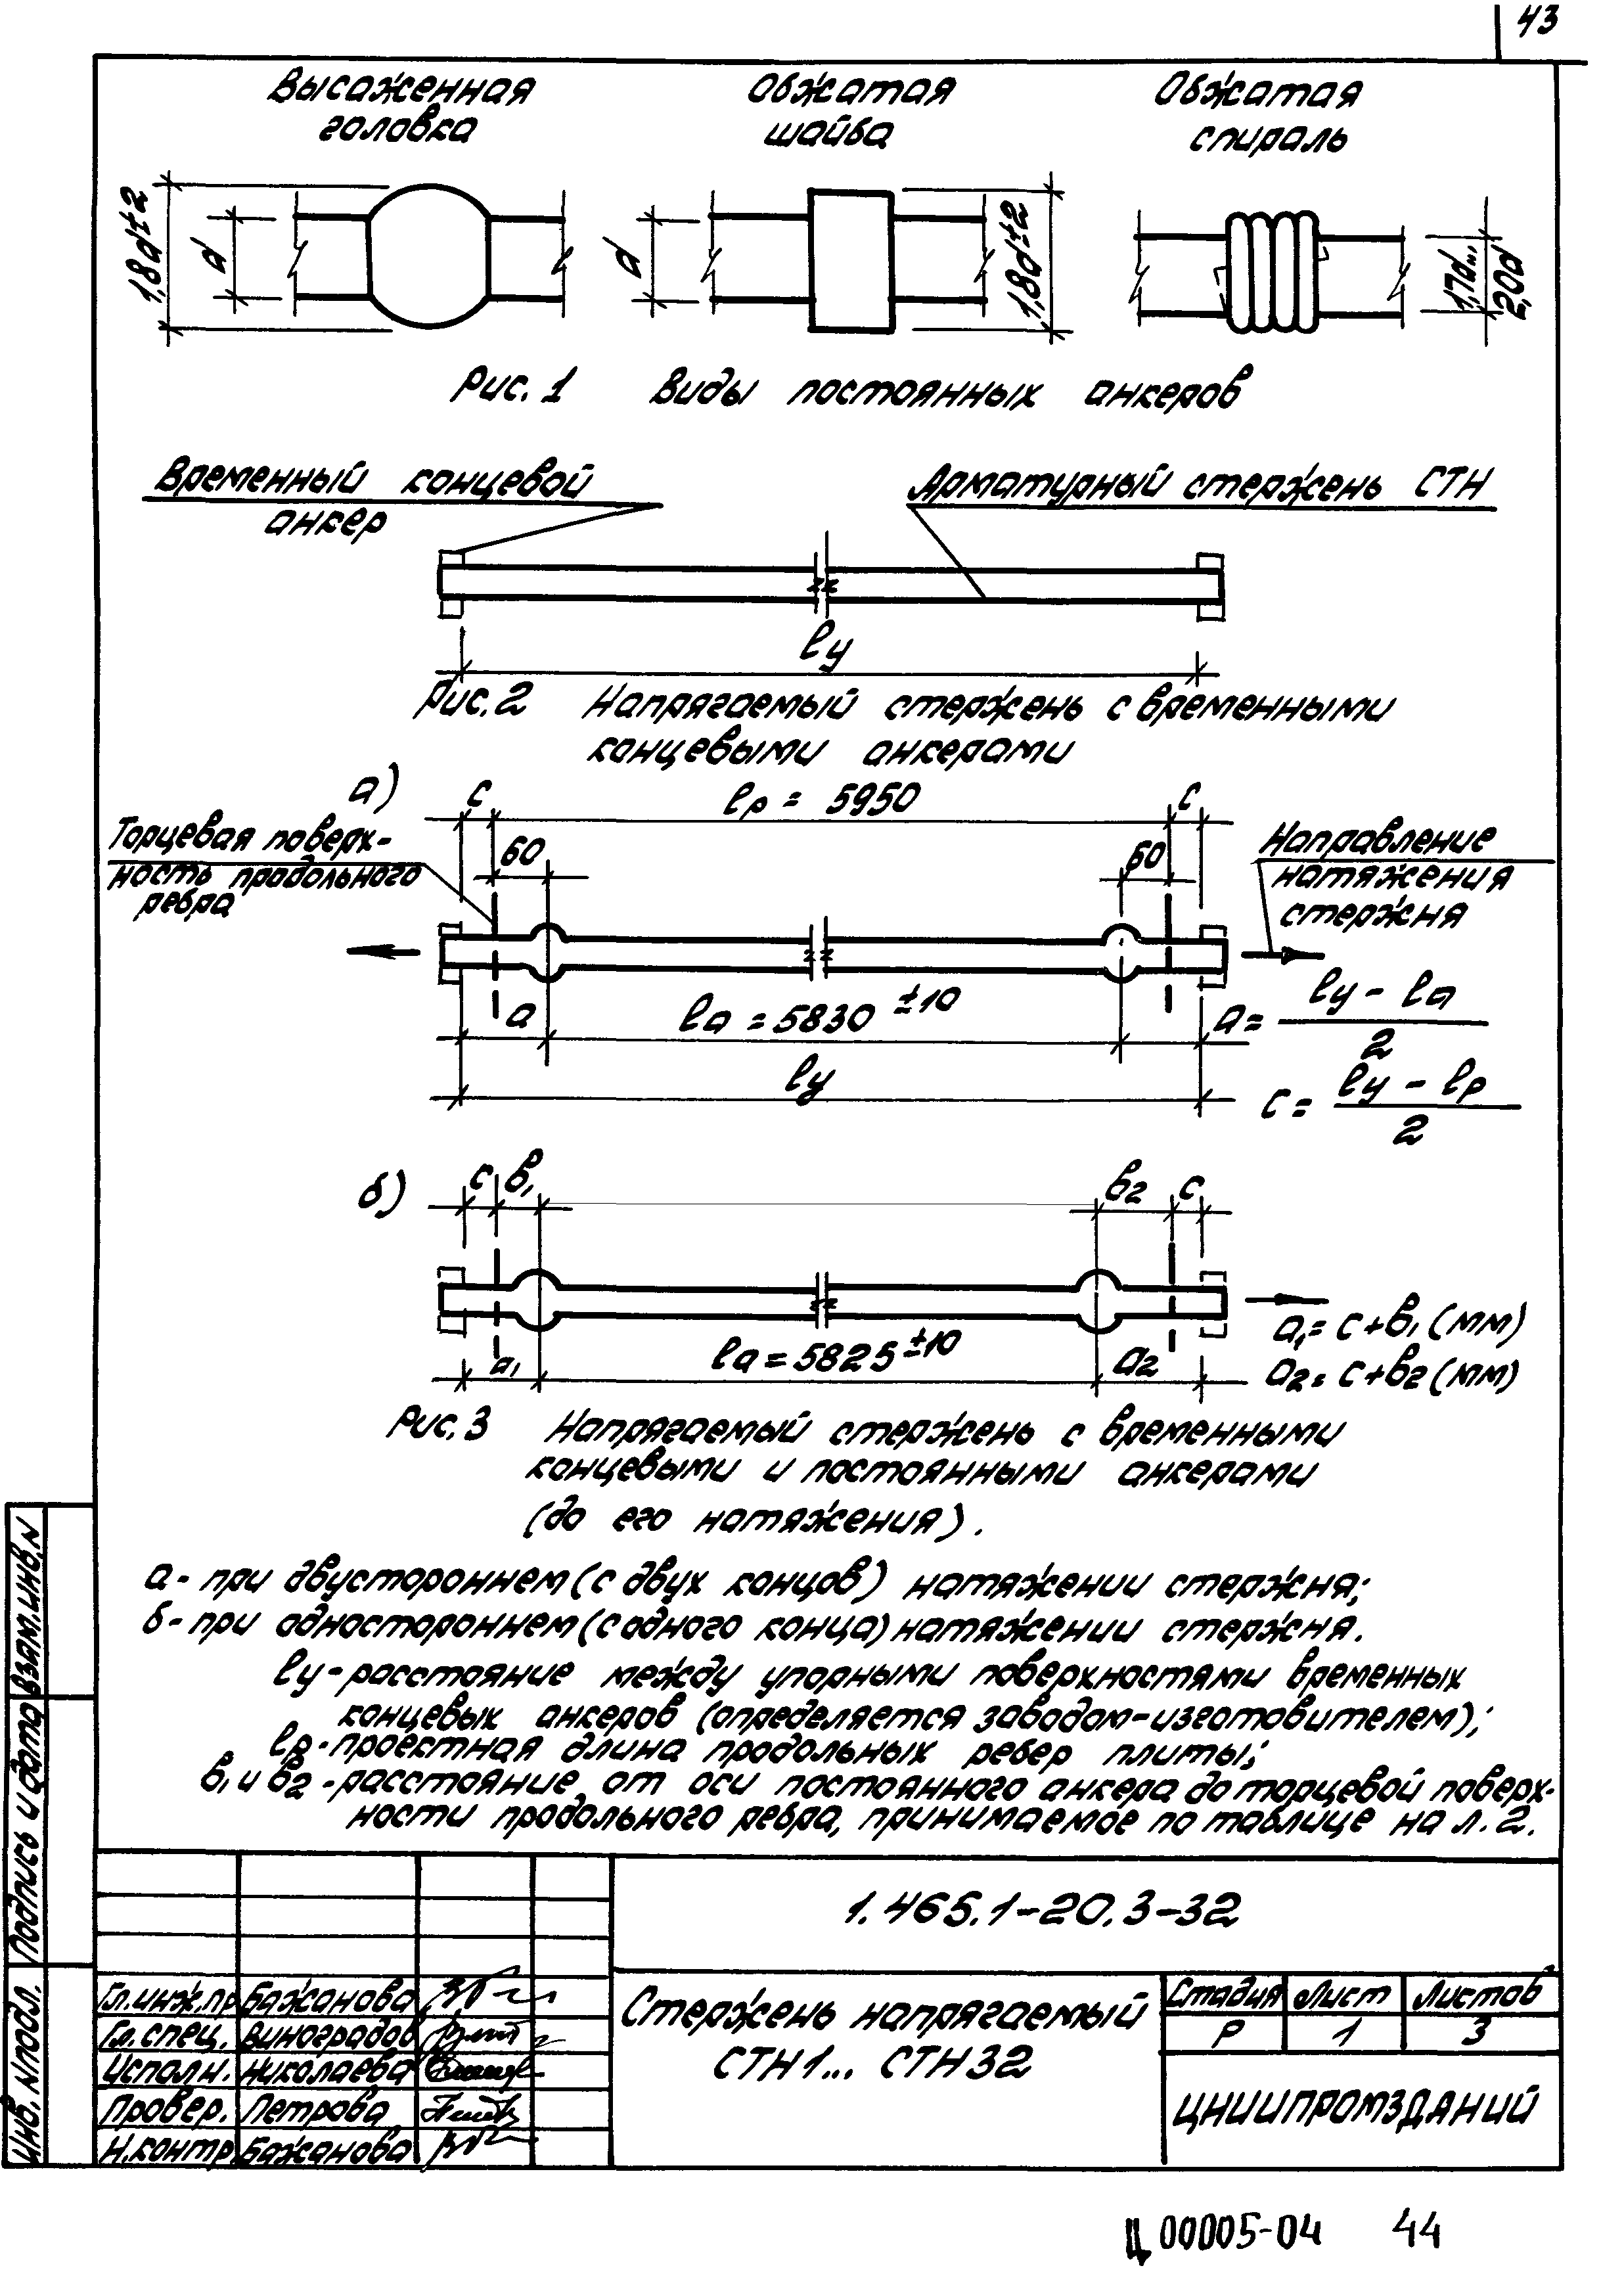 43
Высаженная
головка
Обжатая
шайба
Обжатая
спираль
1,8d±2
d
d
1,8d±2
1,7d...
2,0d
Рис. 1 Виды постоянных анкеров
Временный концевой
анкер
Арматурный стержень СТН
ℓу
Рис. 2 Напрягаемый стержень с временными
концевыми анкерами
а)
с
ℓр = 5950
с
Торцевая поверх-
ность продольного
ребра
60
60
Направление
натяжения
стержня
а
ℓа = 5830 ±10
а = ℓу - ℓа
2
ℓу
с = ℓу - ℓр
2
б)
с в₁
в₂ с
а₁
ℓа = 5825 ±10
а₂
а₁ = с + в₁ (мм)
а₂ = с + в₂ (мм)
Рис. 3 Напрягаемый стержень с временными
концевыми и постоянными анкерами
(до его натяжения).
а - при двустороннем (с двух концов) натяжении стержня;
б - при одностороннем (с одного конца) натяжении стержня.
ℓу - расстояние между упорными поверхностями временных
концевых анкеров (определяется заводом-изготовителем);
ℓр - проектная длина продольных ребер плиты;
в₁ и в₂ - расстояние от оси постоянного анкера до торцевой поверх-
ности продольного ребра, принимаемое по таблице на л. 2.
Взам. инв. N
Подпись и дата
Инв. N подл.
1.465.1-20.3-32
Гл. инж. пр Бажанова
Гл. спец. Виноградов
Исполн. Николаева
Провер. Петрова
Н. контр. Бажанова
Стержень напрягаемый
СТН1... СТН32
Стадия Лист Листов
Р 1 3
ЦНИИПРОМЗДАНИЙ
Ц00005-04 44